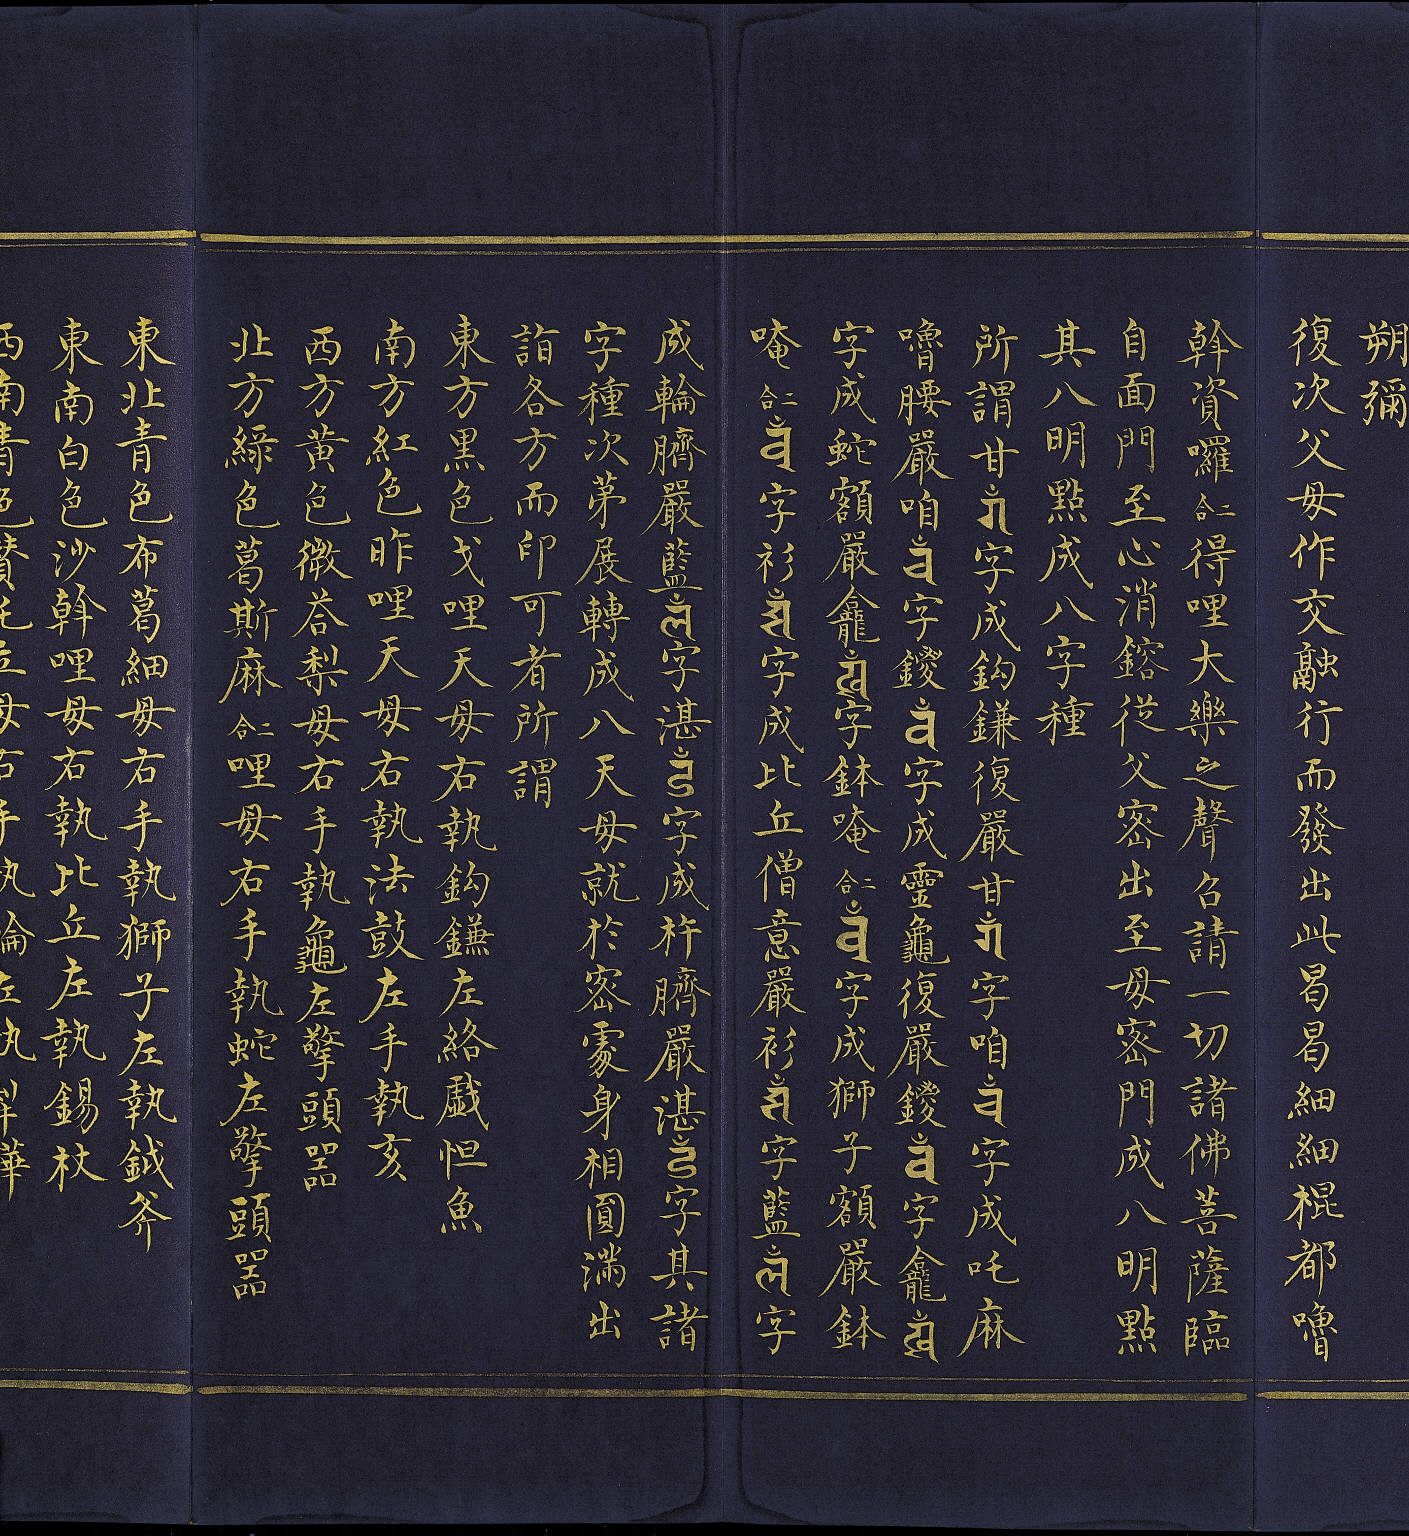 朔彌
復次父母作交融行而發出此曷曷細細棍都嚕
斡資囉二合得哩大樂之聲召請一切諸佛菩薩臨
自面門至心消鎔從父密出至母密門成八明點
其八明點成八字種
所謂甘字成鈎鎌復嚴甘字咱字成吒麻
嚕腰嚴咱字鑁字成靈龜復嚴鑁字龕
字成蛇額嚴龕字鉢唵二合字成獅子額嚴鉢
唵二合字衫字成比丘僧意嚴衫字藍字
成輪臍嚴藍字湛字成杵臍嚴湛字其諸
字種次第展轉成八天母就於密處身相圓滿出
詣各方而印可者所謂
東方黑色戈哩天母右執鈎鎌左絡戲怛魚
南方紅色昨哩天母右執法鼓左手執亥
西方黃色微荅梨母右手執龜左擎頭器
北方綠色葛斯麻二合哩母右手執蛇左擎頭器
東北青色布葛細母右手執獅子左執鉞斧
東南白色沙斡哩母右執比丘左執錫杖
西南青色贊吒立母右手執輪左執犁